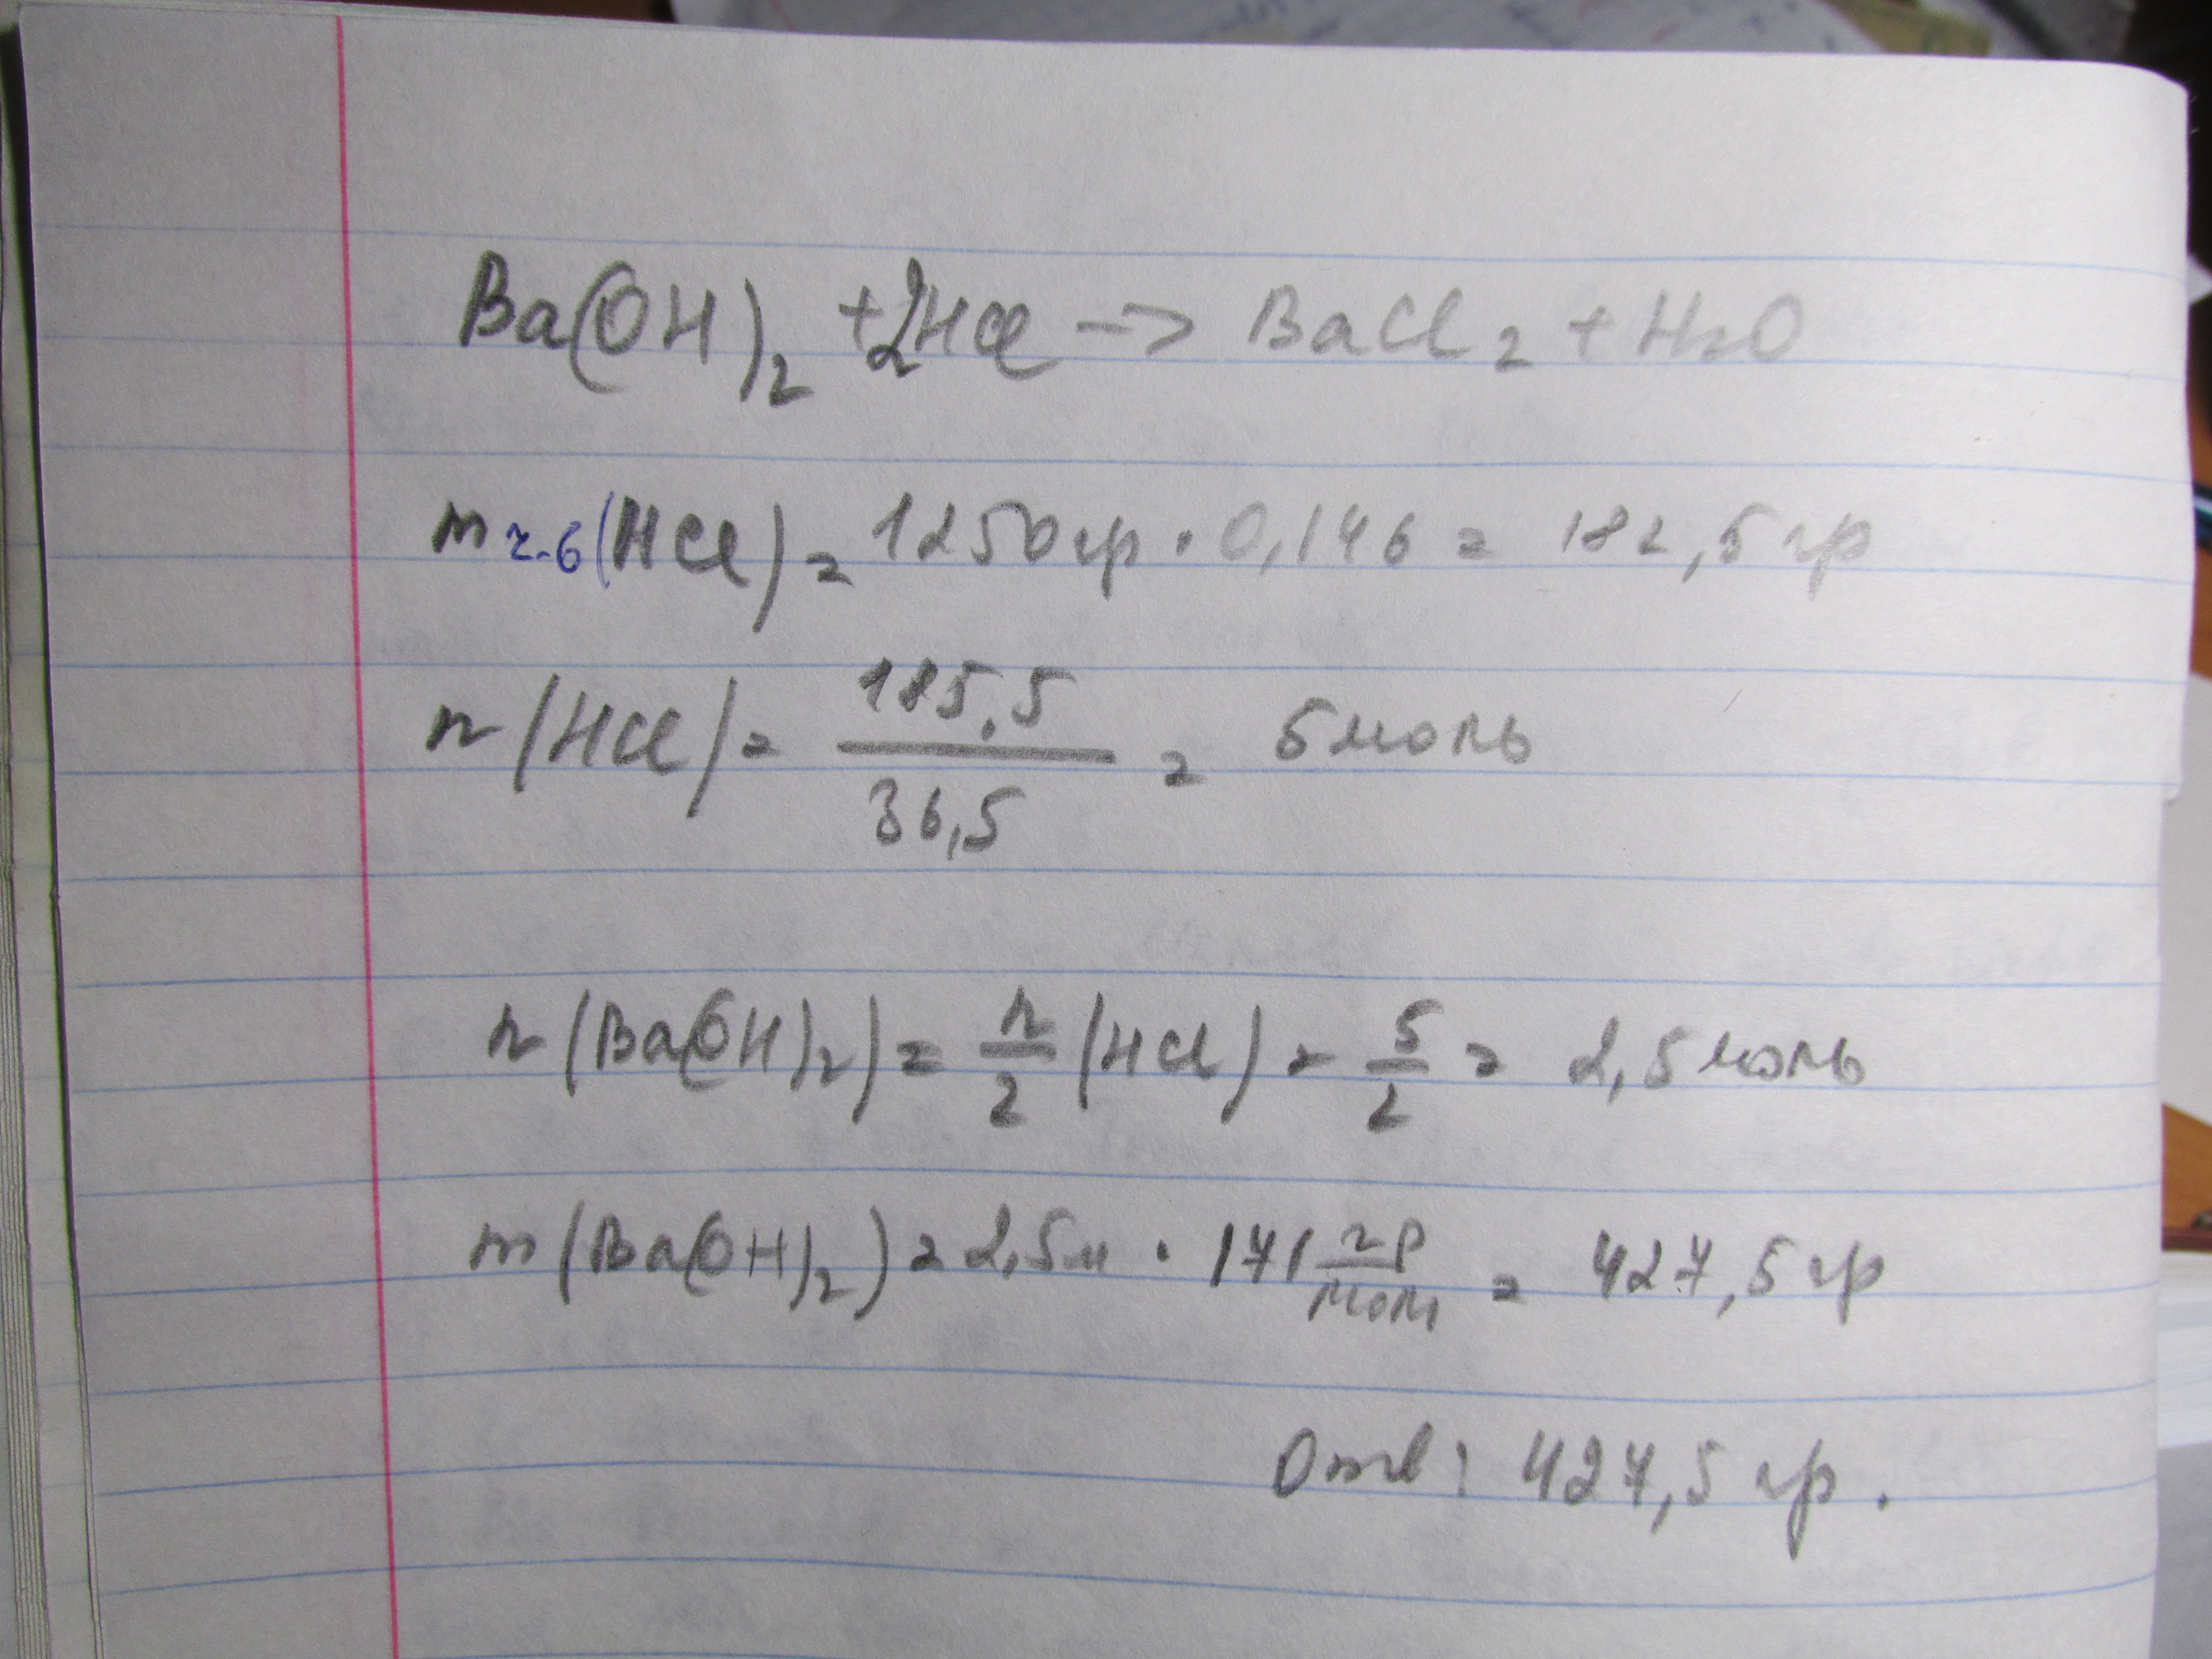 Ba(OH)₂ + 2HCl → BaCl₂ + H₂O
m г-б (HCl) = 1250 гр · 0,146 = 182,5 гр
n (HCl) = 185,5 / 36,5 = 5 моль
n (Ba(OH)₂) = n/2 (HCl) = 5/2 = 2,5 моль
m (Ba(OH)₂) = 2,5 м · 171 гр/моль = 427,5 гр
Отв: 427,5 гр.